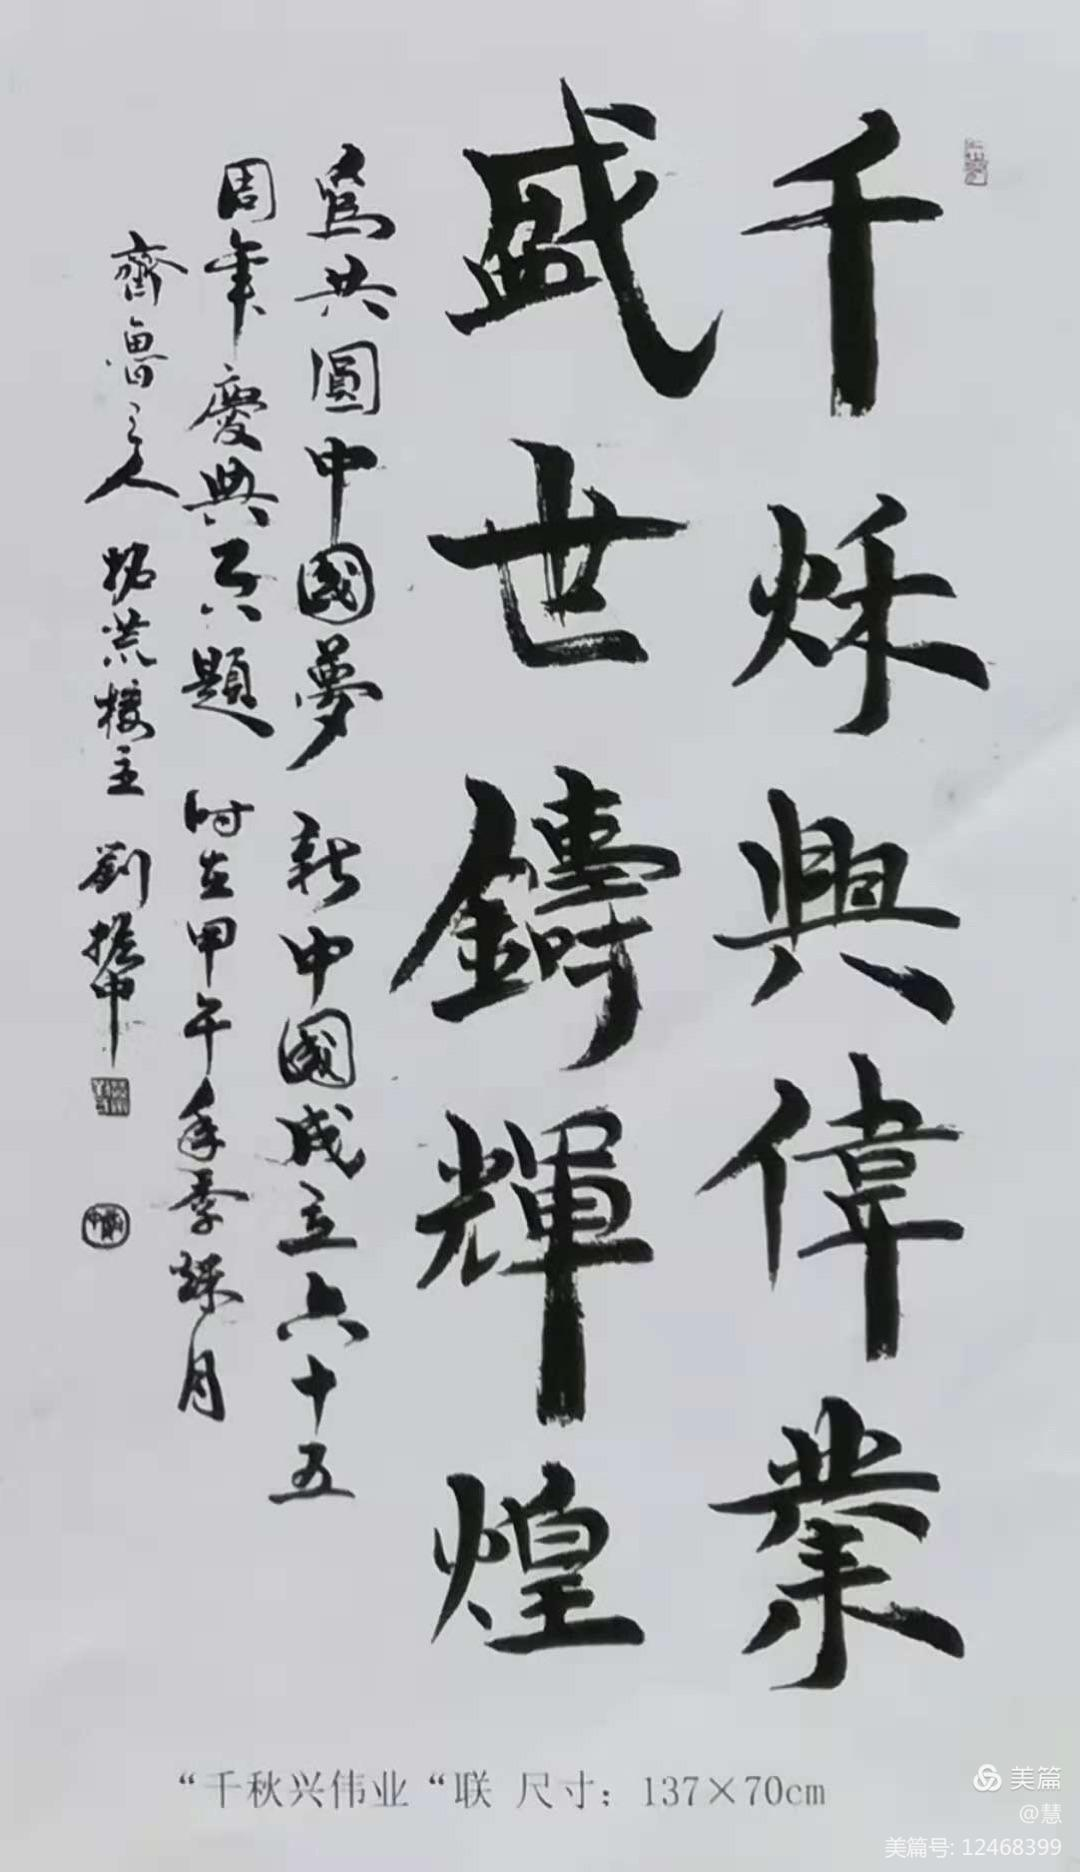 千秌興偉業
盛世鑄輝煌
為共圓中國夢 新中國成立六十五
周年慶典而題 时在甲午年季秌月
齊魯之人 拓荒楼主 劉振中
“千秋兴伟业“联 尺寸：137×70cm
美篇
@慧
美篇号: 12468399